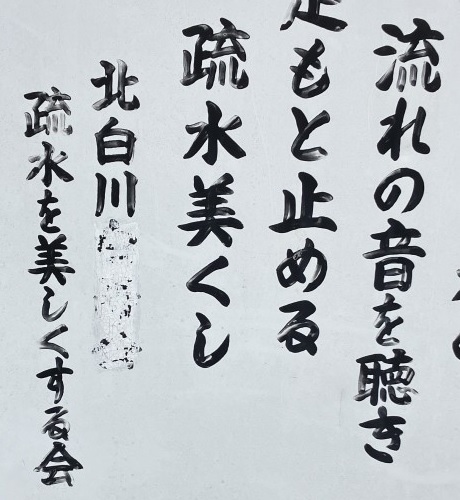 流れの音を聴き
足もと止める
疏水美くし
北白川
疏水を美しくする会